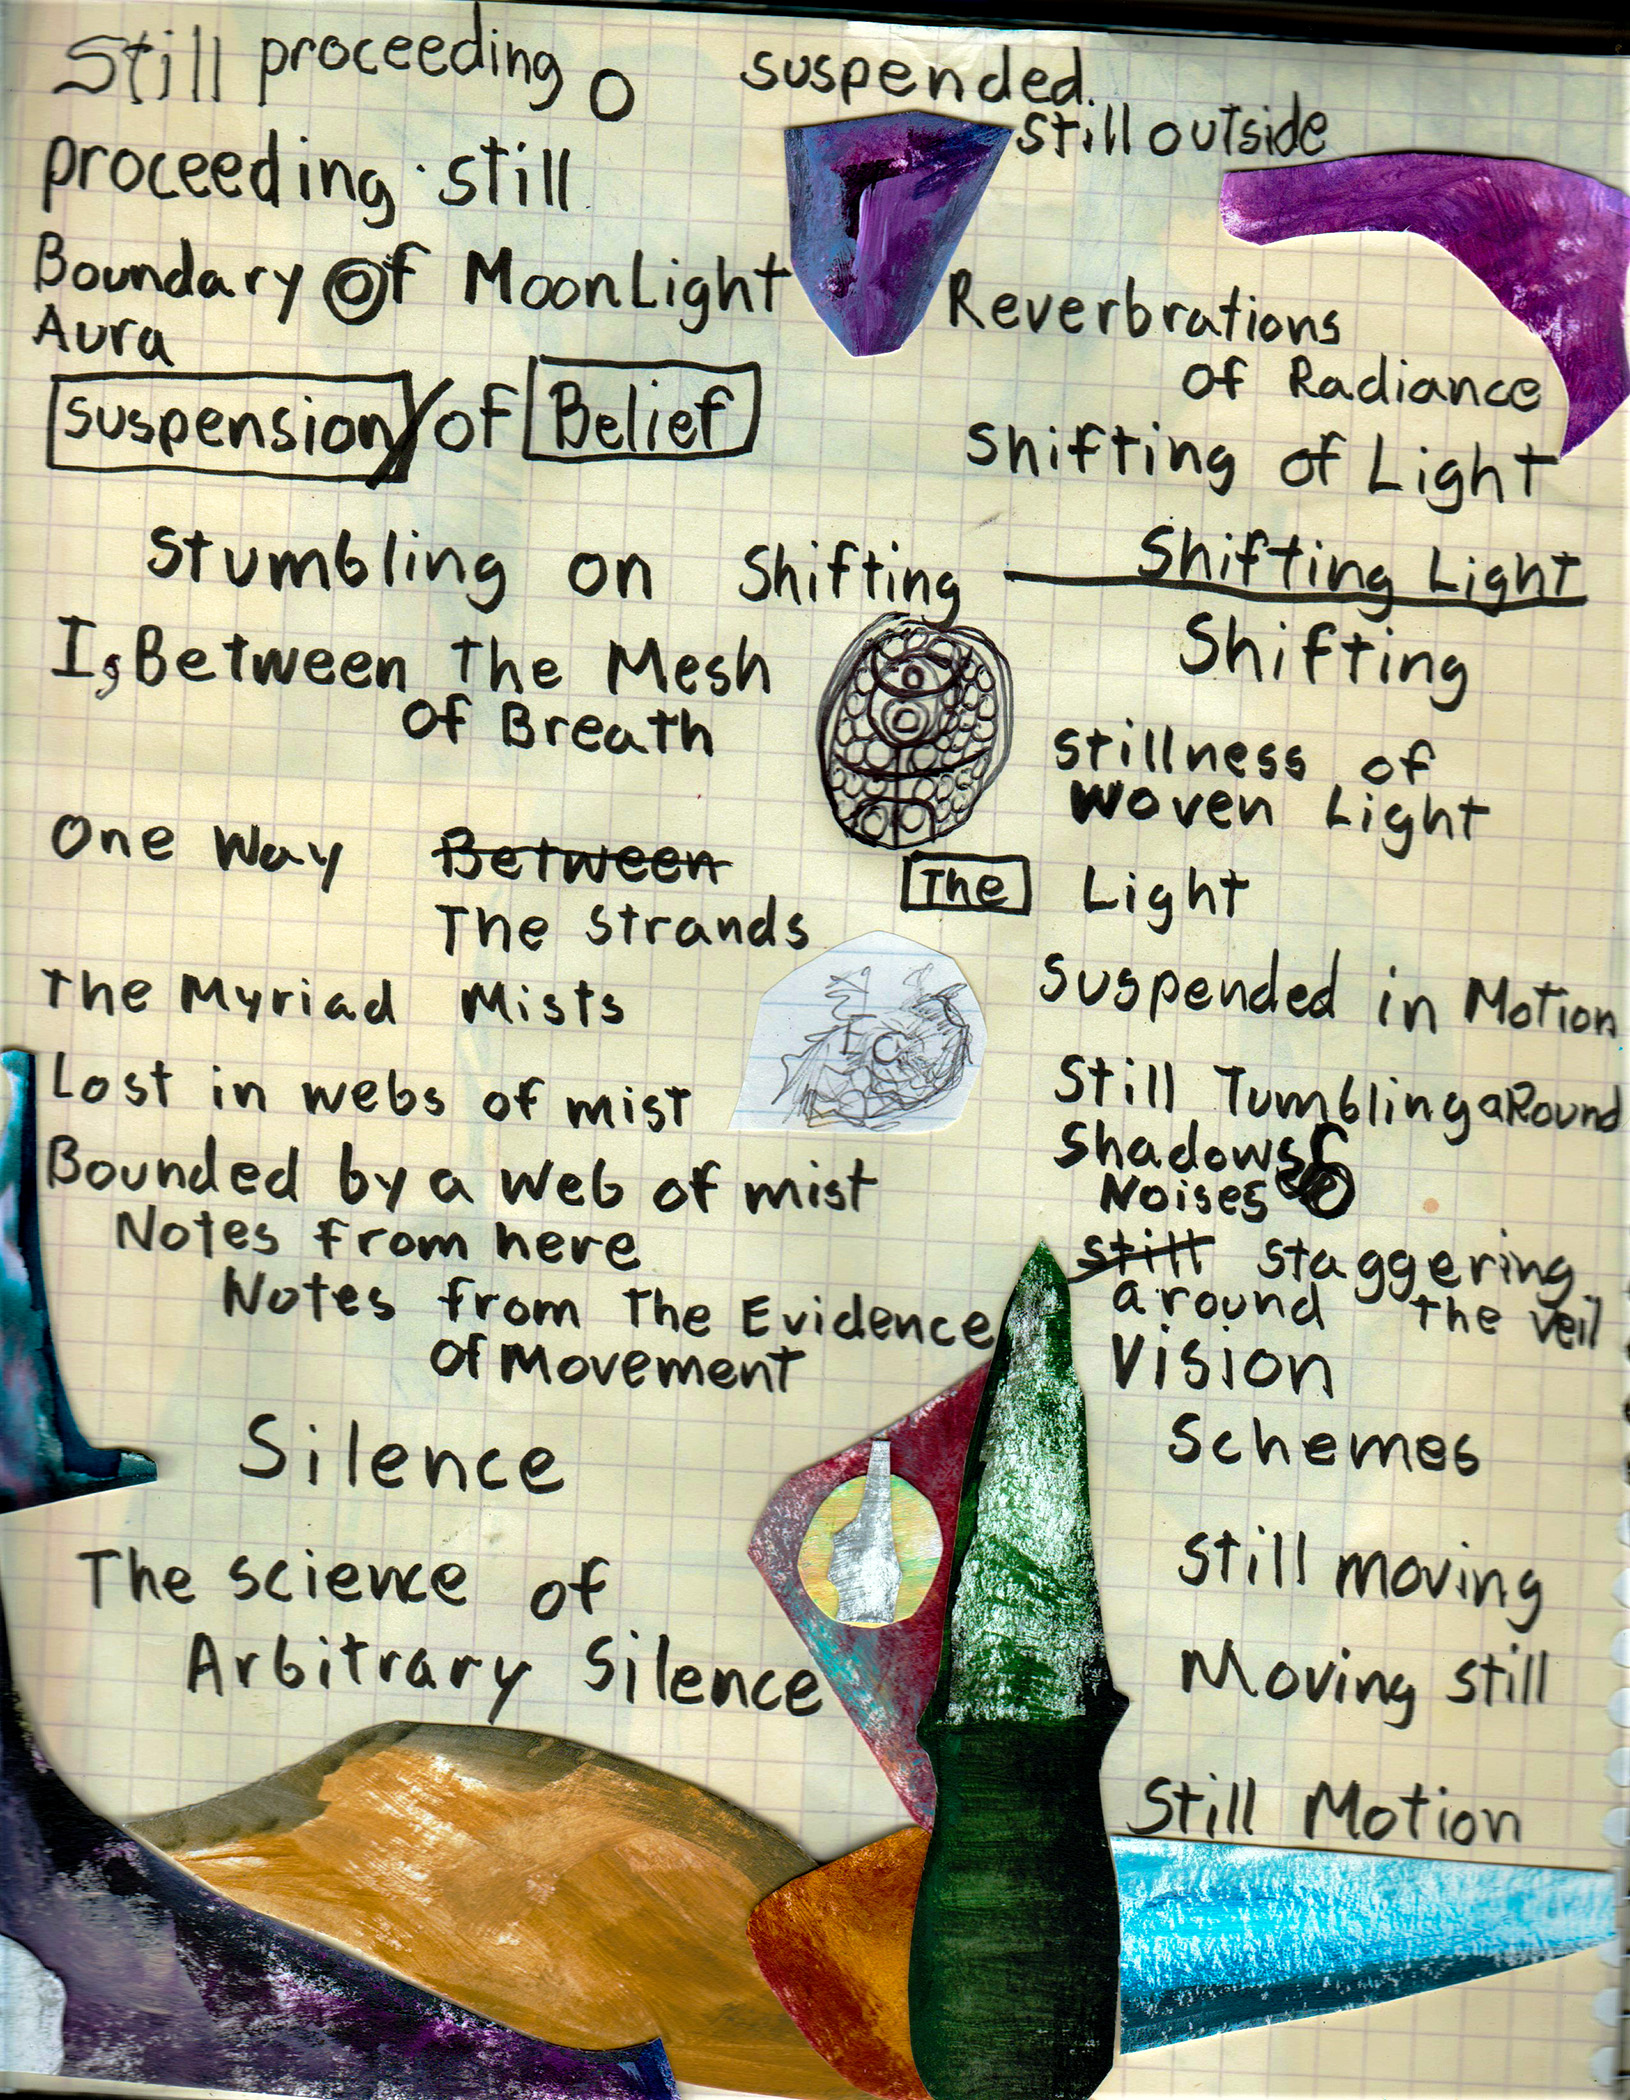 Still proceeding o
proceeding · still
Boundary Of MoonLight
Aura
suspension / of Belief
Stumbling on Shifting
I, Between the Mesh
of Breath
One Way Between
The Strands
the Myriad Mists
Lost in webs of mist
Bounded by a web of mist
Notes from here
Notes from The Evidence
Of Movement
Silence
The science of
Arbitrary Silence
suspended.
still outside
Reverbrations
of Radiance
Shifting of Light
Shifting Light
Shifting
stillness of
woven Light
The Light
suspended in Motion
Still Tumbling aRound
Shadows
Noises
still staggering
around the veil
Vision
Schemes
still moving
Moving still
Still Motion